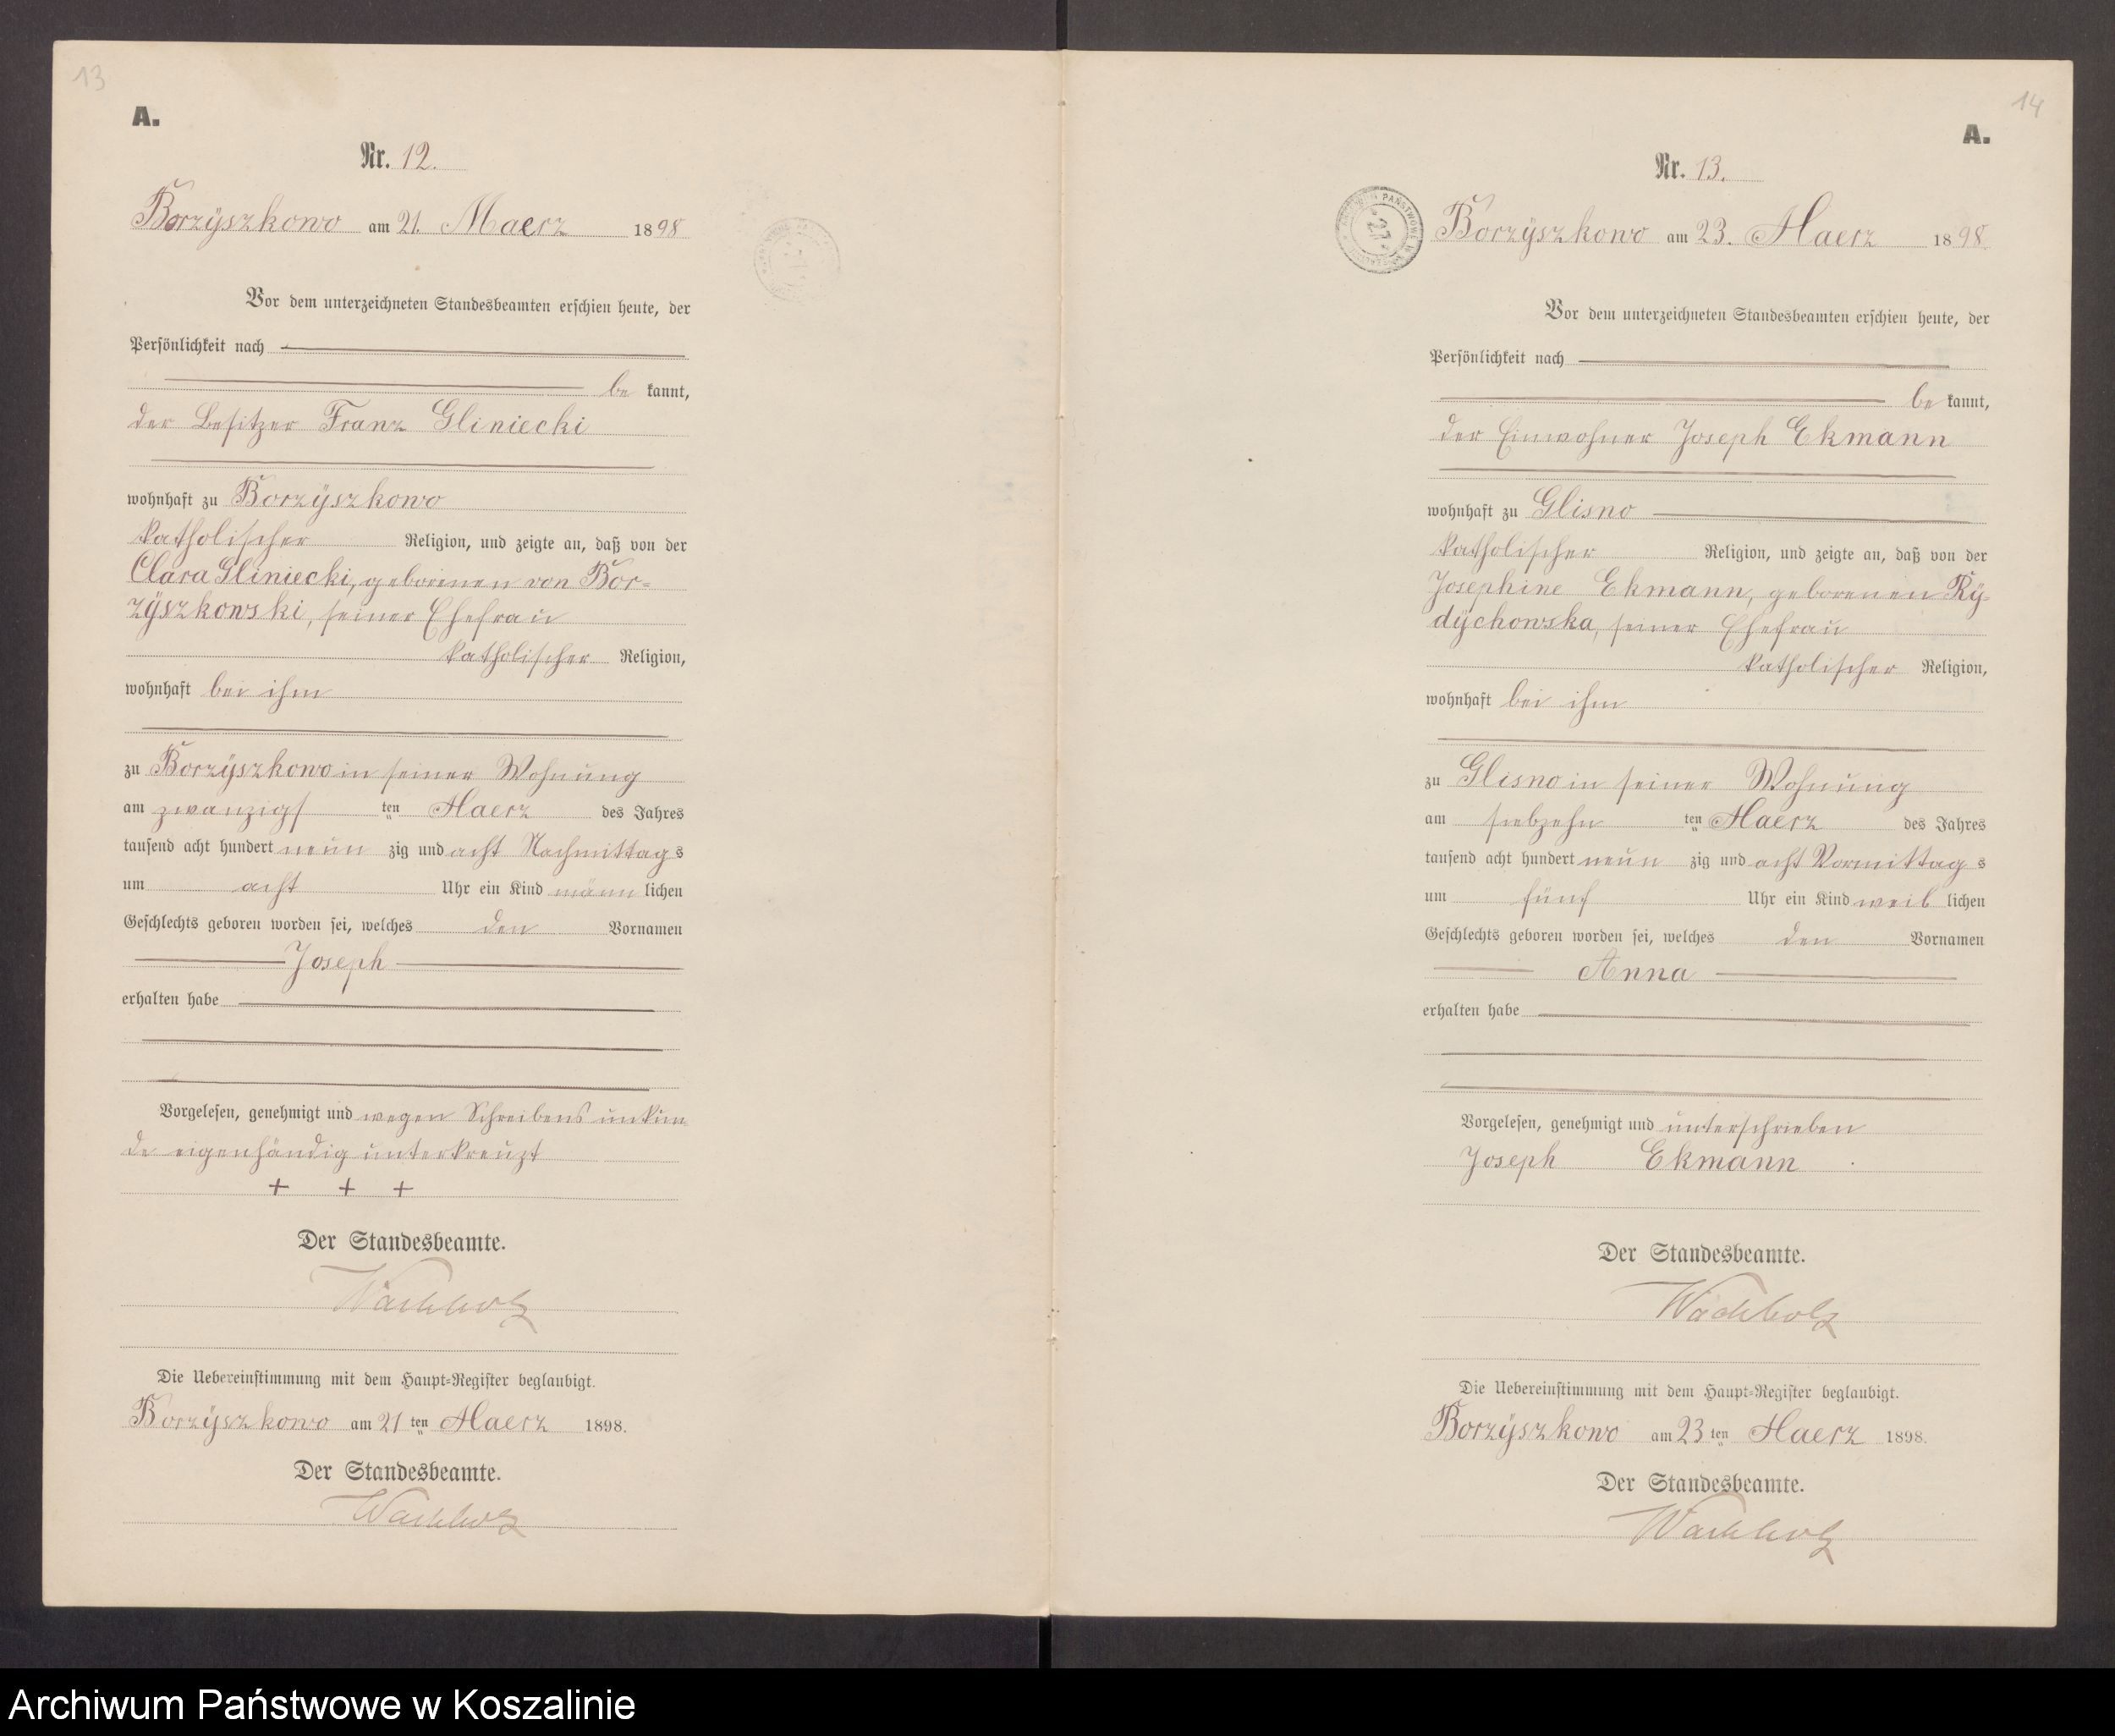 13
A.
Nr. 12.
Borzÿszkowo am 21. Maerz 1898
Vor dem unterzeichneten Standesbeamten erschien heute, der
Persönlichkeit nach
be kannt,
der Besitzer Franz Gliniecki
wohnhaft zu Borzÿszkowo
katholischer Religion, und zeigte an, daß von der
Clara Gliniecki, geborenen von Bor=
zÿszkowski, seiner Ehefrau
katholischer Religion,
wohnhaft bei ihm
zu Borzÿszkowo in seiner Wohnung
am zwanzigs ten Maerz des Jahres
tausend acht hundert neun zig und acht Nachmittag s
um acht Uhr ein Kind männ lichen
Geschlechts geboren worden sei, welches den Vornamen
Joseph
erhalten habe
Vorgelesen, genehmigt und wegen Schreibens unkun
de eigenhändig unterkreuzt
+ + +
Der Standesbeamte.
Wachholz
Die Uebereinstimmung mit dem Haupt=Register beglaubigt.
Borzÿszkowo am 21 ten Maerz 1898.
Der Standesbeamte.
Wachholz
14
A.
Nr. 13.
Borzÿszkowo am 23. Maerz 1898.
Vor dem unterzeichneten Standesbeamten erschien heute, der
Persönlichkeit nach
be kannt,
der Einwohner Joseph Ekmann
wohnhaft zu Glisno
katholischer Religion, und zeigte an, daß von der
Josephine Ekmann, geborenen Rÿ=
dÿchowska, seiner Ehefrau
katholischer Religion,
wohnhaft bei ihm
zu Glisno in seiner Wohnung
am siebzehn ten Maerz des Jahres
tausend acht hundert neun zig und acht Vormittag s
um fünf Uhr ein Kind weib lichen
Geschlechts geboren worden sei, welches den Vornamen
Anna
erhalten habe
Vorgelesen, genehmigt und unterschrieben
Joseph Ekmann
Der Standesbeamte.
Wachholz
Die Uebereinstimmung mit dem Haupt=Register beglaubigt.
Borzÿszkowo am 23 ten Maerz 1898.
Der Standesbeamte.
Wachholz
Archiwum Państwowe w Koszalinie